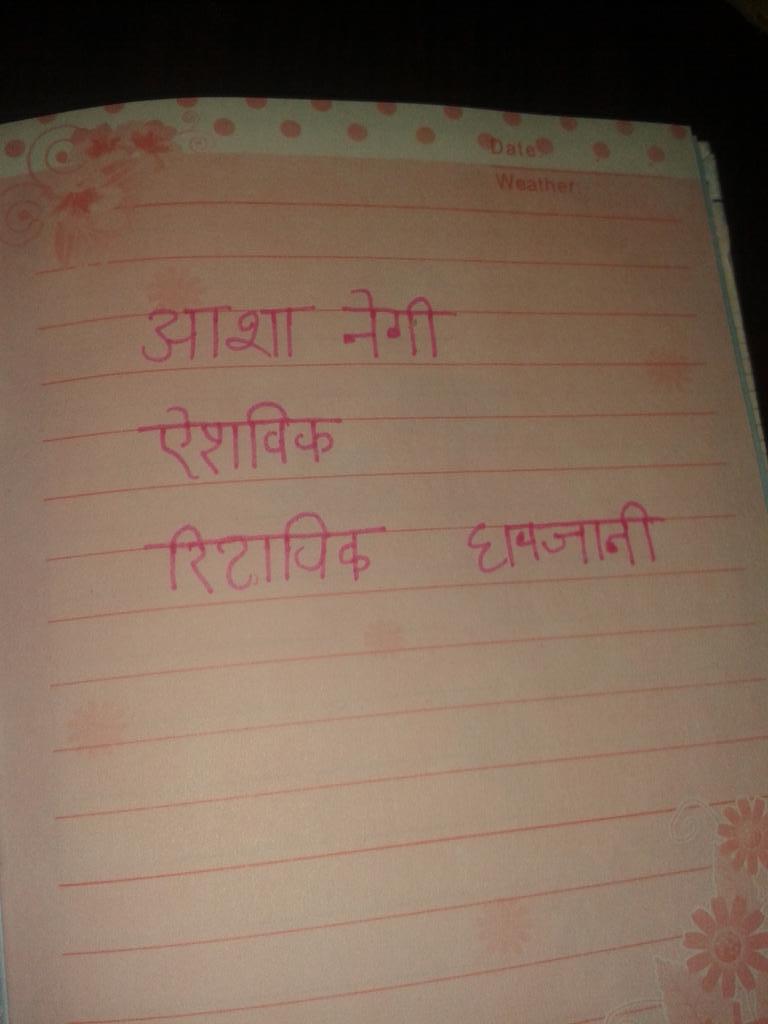 Date
Weather
आशा नेगी
ऐशविक
रिटाविक धनजानी